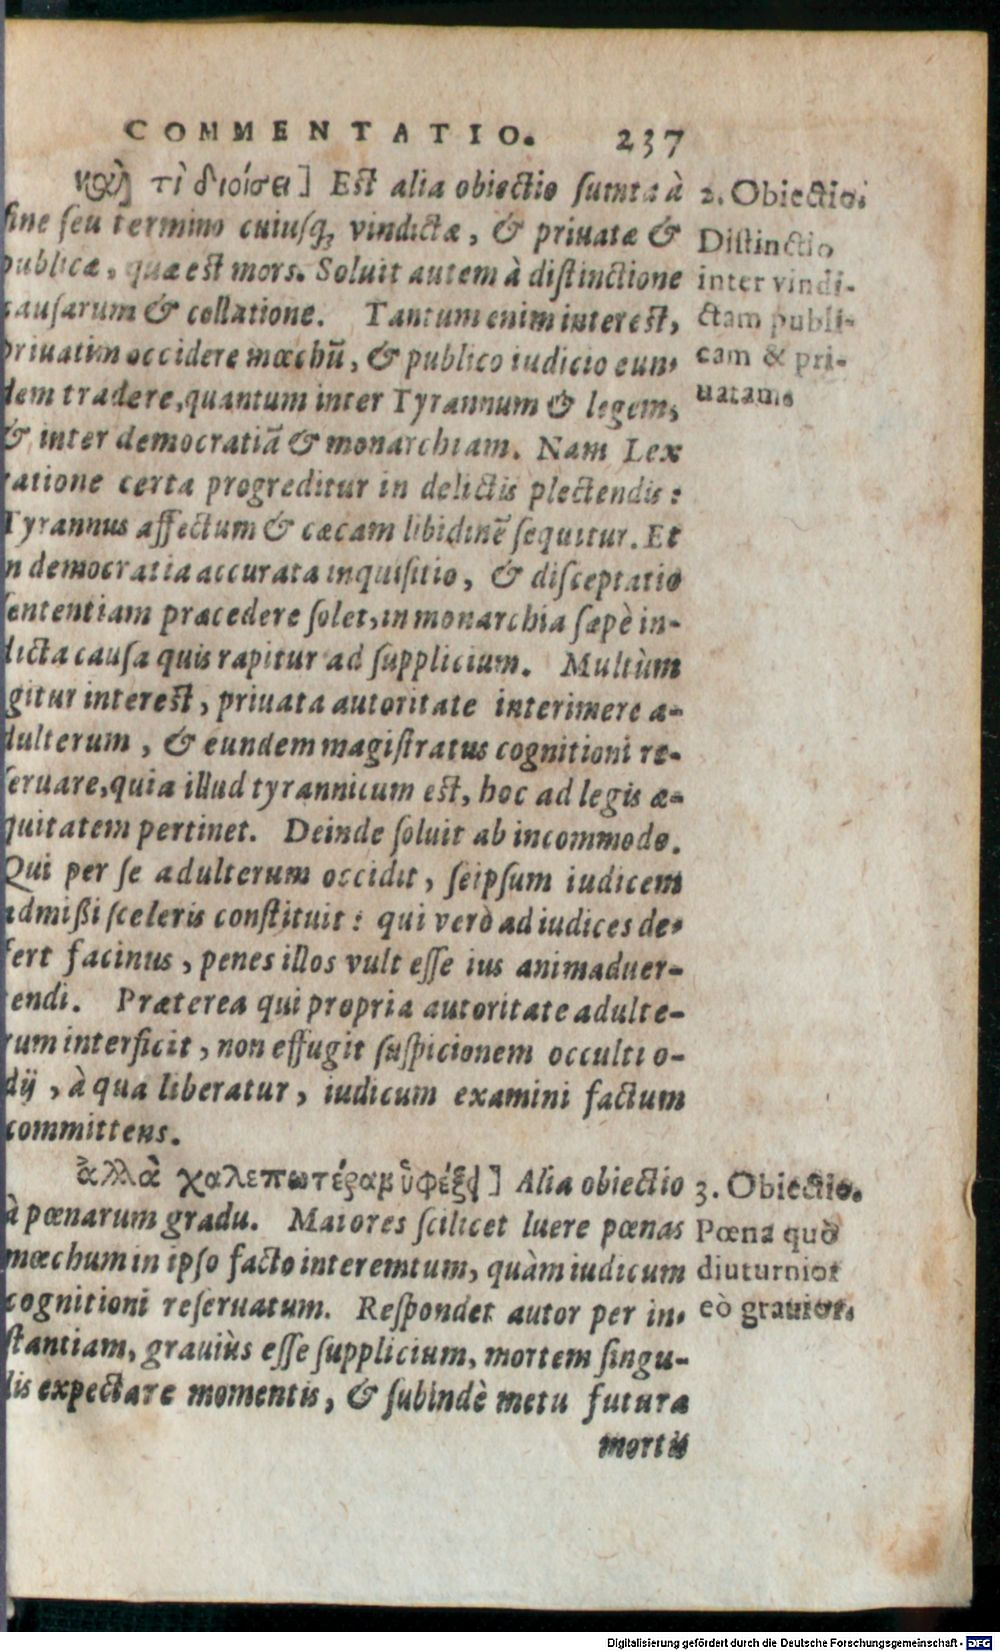 COMMENTATIO. 237
καὶ τὶ διοίσει] Est alia obiectio sumta à
fine seu termino cuiusq; vindictæ, & priuatæ &
publicæ, quæ est mors. Soluit autem à distinctione
causarum & collatione. Tantum enim interest,
priuatim occidere mœchū, & publico iudicio eun-
dem tradere, quantum inter Tyrannum & legem,
& inter democratiā & monarchiam. Nam Lex
ratione certa progreditur in delictis plectendis:
Tyrannus affectum & cæcam libidinē sequitur. Et
in democratia accurata inquisitio, & disceptatio
sententiam præcedere solet, in monarchia sæpè in-
dicta causa quis rapitur ad supplicium. Multùm
igitur interest, priuata autoritate interimere a-
dulterum, & eundem magistratus cognitioni re-
seruare, quia illud tyrannicum est, hoc ad legis æ-
quitatem pertinet. Deinde soluit ab incommodo.
Qui per se adulterum occidit, seipsum iudicem
admißi sceleris constituit: qui verò ad iudices de-
fert facinus, penes illos vult esse ius animaduer-
tendi. Præterea qui propria autoritate adulte-
rum interficit, non effugit suspicionem occulti o-
dij, à qua liberatur, iudicum examini factum
committens.
ἀλλὰ χαλεπωτέραμ ὑφέξει] Alia obiectio
à pœnarum gradu. Maiores scilicet luere pœnas
mœchum in ipso facto interemtum, quàm iudicum
cognitioni reseruatum. Respondet autor per in-
stantiam, grauiùs esse supplicium, mortem singu-
lis expectare momentis, & subindè metu futura
mortis
2. Obiectio.
Distinctio
inter vindi-
ctam publi-
cam & pri-
uatam.
3. Obiectio.
Pœna quò
diuturnior
eò grauior.
Digitalisierung gefördert durch die Deutsche Forschungsgemeinschaft - DFG